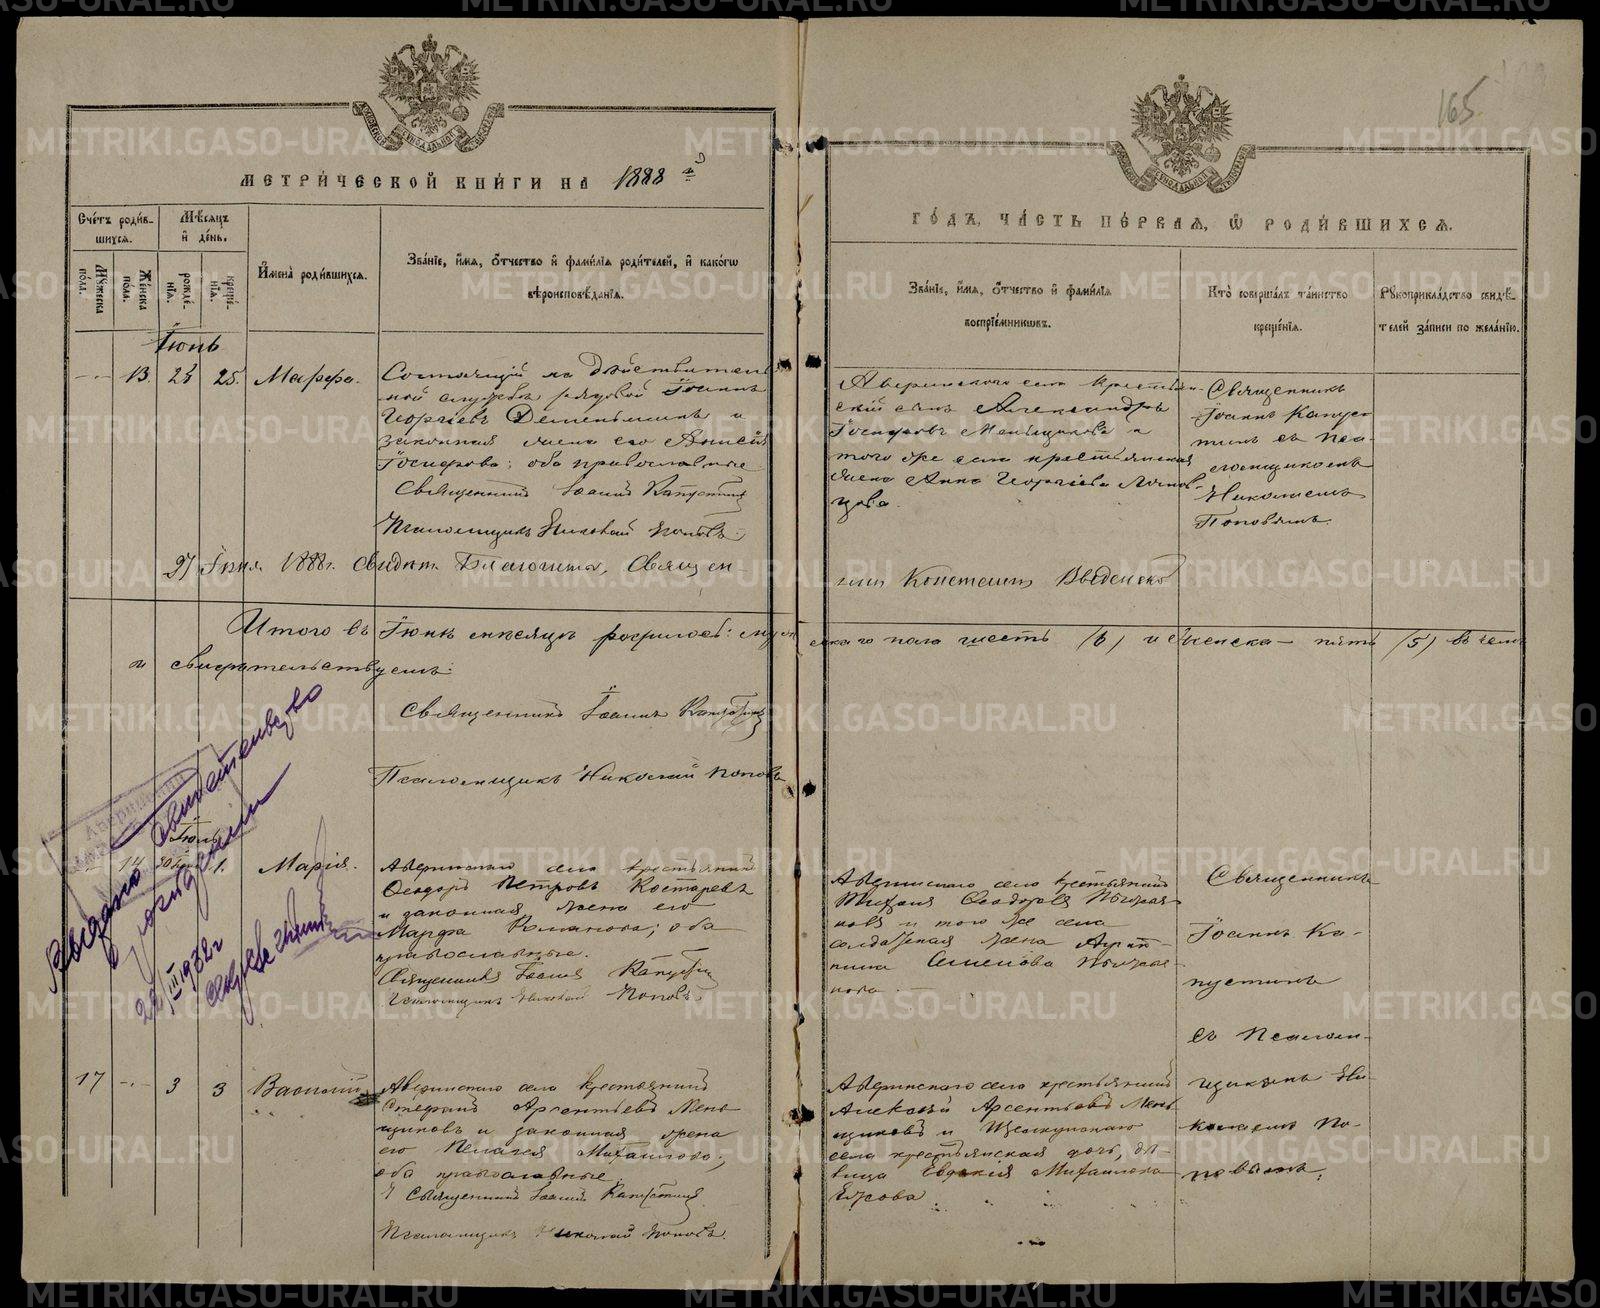 165
МЕТРИЧЕСКОЙ КНИГИ НА 1888 й
ГОДЪ, ЧАСТЬ ПЕРВАЯ, Ѡ РОДИВШИХСЯ.
Счетъ родив-
шихся.
Мужеска пола.
Женска пола.
Мѣсяцъ
и день.
рожде-
нія.
креще-
нія.
Имена родившихся.
Званіе, имя, отчество и фамилія родителей, и какогѡ
вѣроисповѣданія.
Званіе, имя, отчество и фамилія
воспріемниковъ.
Кто совершалъ таинство
крещенія.
Рукоприкладство свидѣ-
телей записи по желанію.
Іюнь
13. 24 25. Марфа.
Состоящій на дѣйствитель
ной службѣ рядовой Іоаннъ
Георгіевъ Деменьшинъ и
законная жена его Анисія
Іосифова; оба православные
Священникъ Іоаннъ Капустинъ
Псаломщикъ Николай Поповъ.
Аверинскаго села крестьян-
скій сынъ Александръ
Іосифовъ Меньщиковъ и
того же села крестьянская
жена Анна Георгіева
Священникъ
Іоаннъ Капус-
тинъ съ Пса-
ломщикомъ
Николаемъ
Поповымъ.
27 Іюня 1888г. Свидѣт. Благочинный, Священ-
никъ Константинъ Введенскій
Итого въ Іюнѣ мѣсяцѣ родилось: мужескаго пола шесть (6) и женска — пять (5) въ чемъ
и свидѣтельствуемъ:
Священникъ Іоаннъ Капустинъ
Псаломщикъ Николай Поповъ
Выдано свидетельство
о рождении
22/III 1932 г
Іюль
14 30 Іюня 1. Марія.
Аверинскаго села крестьянинъ
Ѳеодоръ Петровъ Костаревъ
и законная жена его
Марфа Романова; оба
православные.
Священникъ Іоаннъ Капустинъ
Псаломщикъ Николай Поповъ
Аверинскаго села крестьянинъ
Ѳеодоровъ
и того же села
солдатская жена Агрип-
пина Семенова
Священникъ
Іоаннъ Ка-
пустинъ
съ Псалом-
щикомъ Ни-
колаемъ По-
повымъ.
17 3 3 Василій
Аверинскаго села крестьянинъ
Стефанъ Арсентьевъ Мень
щиковъ и законная жена
его Пелагея Михаилова;
оба православные
Священникъ Іоаннъ Капустинъ
Псаломщикъ Николай Поповъ.
Аверинскаго села крестьянинъ
Алексѣй Арсентьевъ Мень
щиковъ и Щелкунскаго
села крестьянская дочь, дѣ-
вица Евдокія Михаилова
METRIKI.GASO-URAL.RU